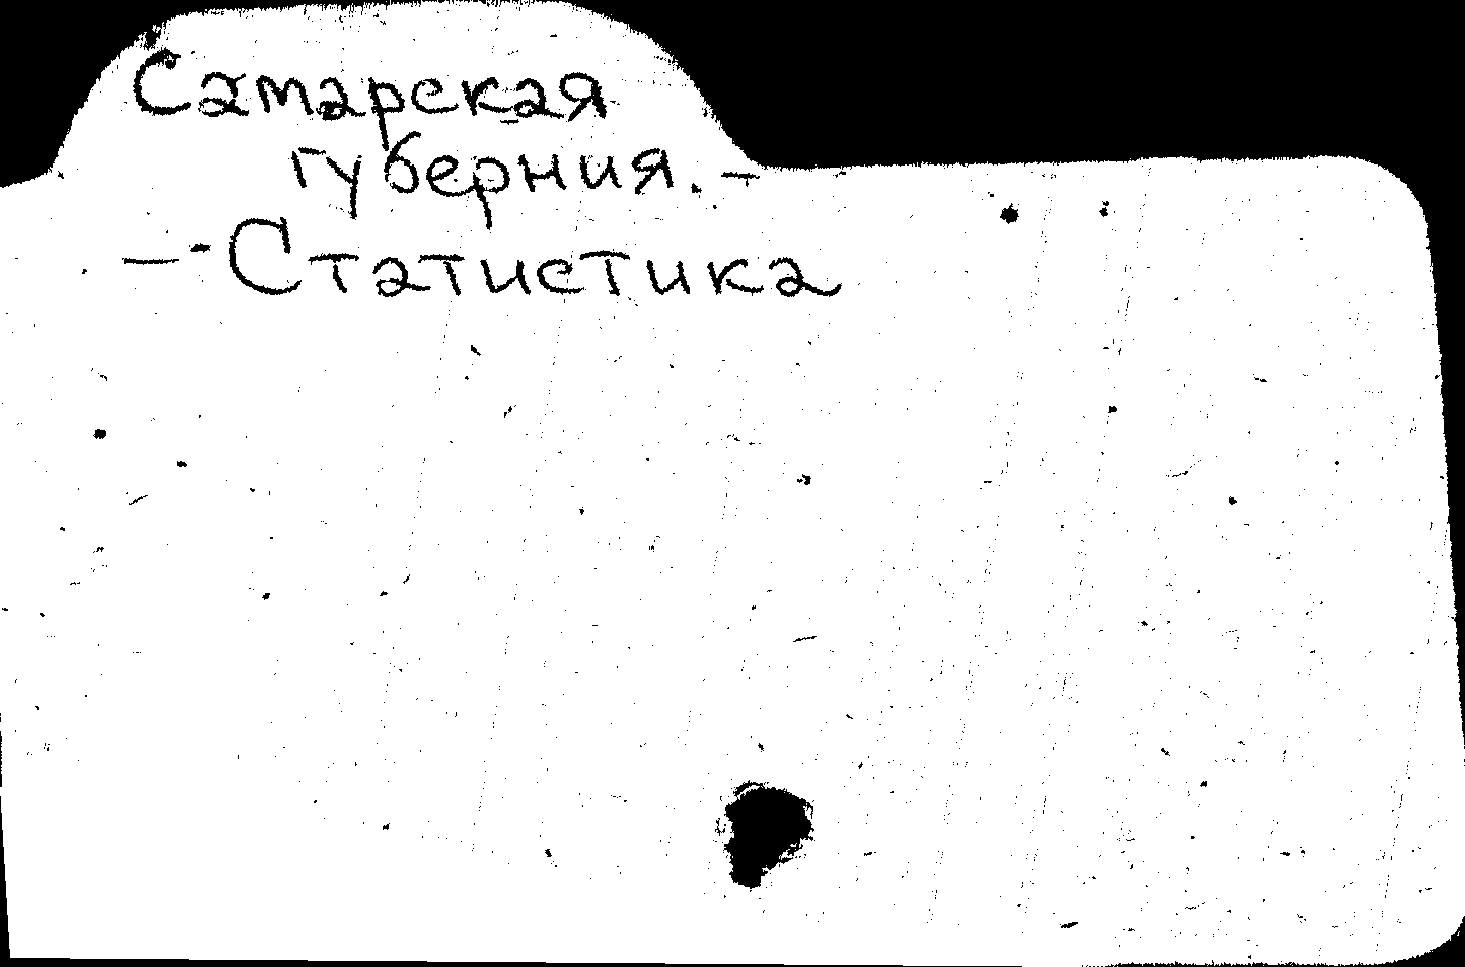 Самарская
губерния. -
- Статистика